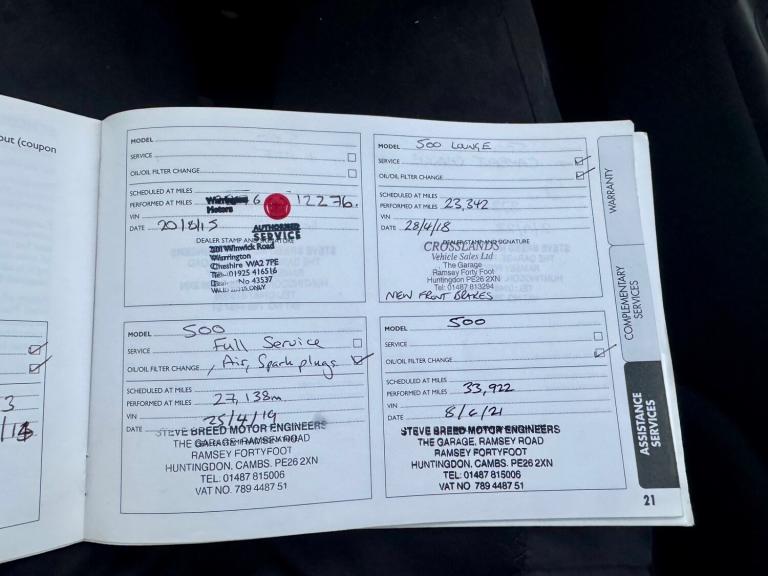 out (coupon
3
MODEL
SERVICE
OIL/OIL FILTER CHANGE
SCHEDULED AT MILES
PERFORMED AT MILES 12276.
VIN
DATE 20/8/15
AUTHORISED
SERVICE
DEALER STAMP AND SIGNATURE
Winwick Road
Warrington
Cheshire WA2 7PE
Tel: 01925 416516
No 43537
MODEL 500 LOUNGE
SERVICE
OIL/OIL FILTER CHANGE
SCHEDULED AT MILES
PERFORMED AT MILES 23,342
VIN
DATE 28/4/18
DEALER STAMP AND SIGNATURE
CROSSLANDS
Vehicle Sales Ltd
The Garage
Ramsey Forty Foot
Huntingdon PE26 2XN
Tel: 01487 813294
NEW FRONT BRAKES
MODEL 500
SERVICE Full Service
OIL/OIL FILTER CHANGE , Air, Spark plugs
SCHEDULED AT MILES
PERFORMED AT MILES 27,138m
VIN
DATE 25/4/19
STEVE BREED MOTOR ENGINEERS
THE GARAGE, RAMSEY ROAD
RAMSEY FORTYFOOT
HUNTINGDON. CAMBS. PE26 2XN
TEL: 01487 815006
VAT NO. 789 4487 51
MODEL 500
SERVICE
OIL/OIL FILTER CHANGE
SCHEDULED AT MILES
PERFORMED AT MILES 33,922
VIN
DATE 8/6/21
STEVE BREED MOTOR ENGINEERS
THE GARAGE, RAMSEY ROAD
RAMSEY FORTYFOOT
HUNTINGDON. CAMBS. PE26 2XN
TEL: 01487 815006
VAT NO. 789 4487 51
WARRANTY
COMPLEMENTARY
SERVICES
ASSISTANCE
SERVICES
21